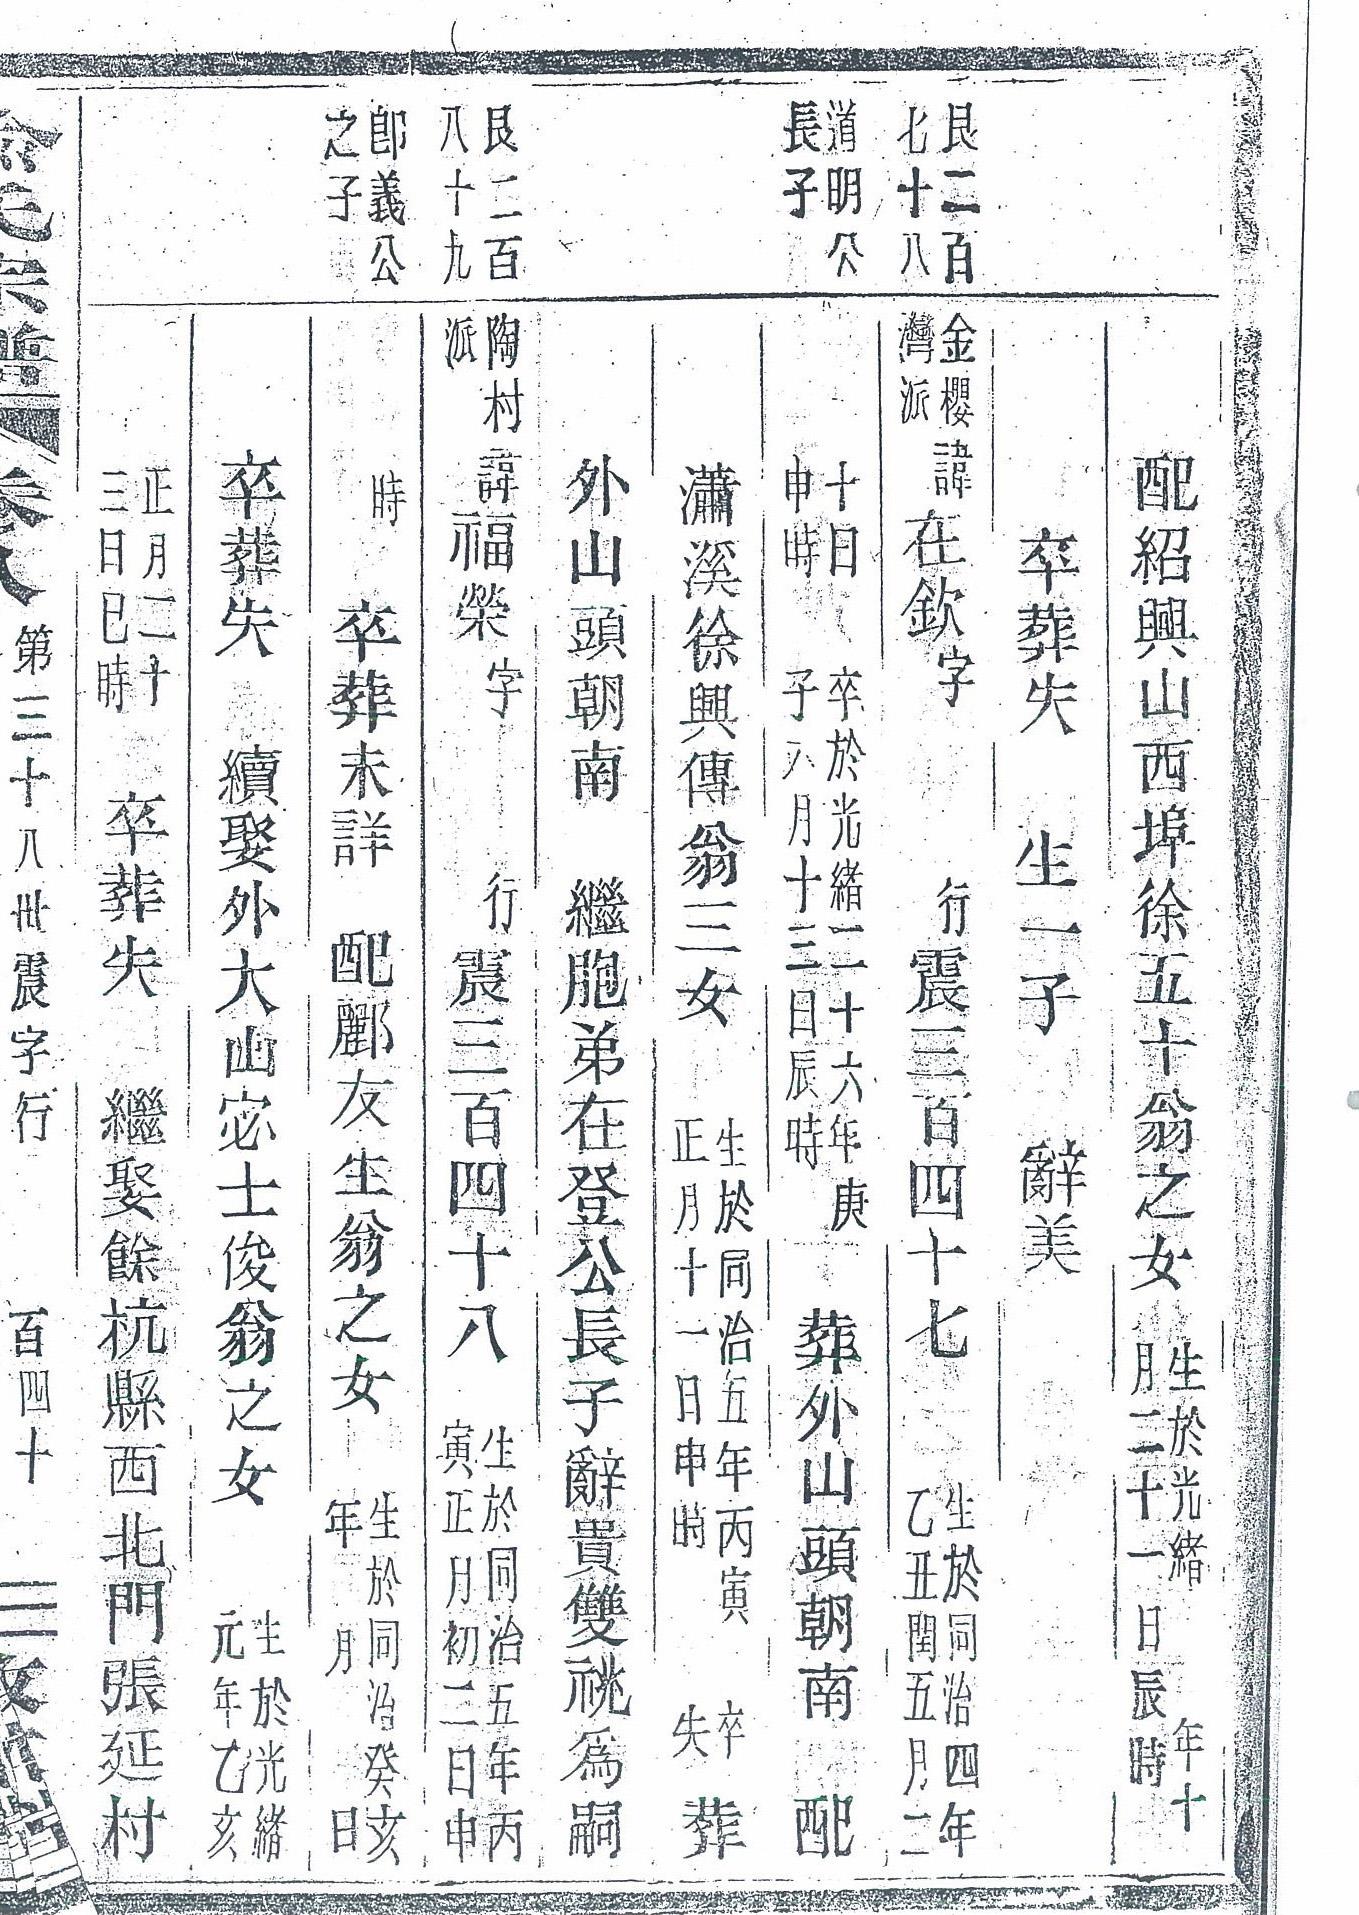 配紹興山西埠徐五十翁之女 生於光緒 年十月二十一日辰時
卒葬失 生一子 辭美
艮二百七十八 金櫻灣派 諱在欽字 行震三百四十七 生於同治四年乙丑閏五月二
道明公長子 十日申時 卒於光緒二十六年庚子八月十三日辰時 葬外山頭朝南 配
瀟溪徐興傳翁三女 生於同治五年丙寅正月十一日申時 卒失 葬
外山頭朝南 繼胞弟在登公長子辭貴雙祧為嗣
艮二百八十九 陶村派 諱福榮字 行震三百四十八 生於同治五年丙寅正月初二日申
即義公之子 時 卒葬未詳 配酈友生翁之女 生於同治癸亥年 月 日
卒葬失 續娶外大凼宓士俊翁之女 生於光緒元年乙亥
正月二十三日巳時 卒葬失 繼娶餘杭縣西北門張延村
宗譜 卷八 第三十八卅震字行 百四十 三